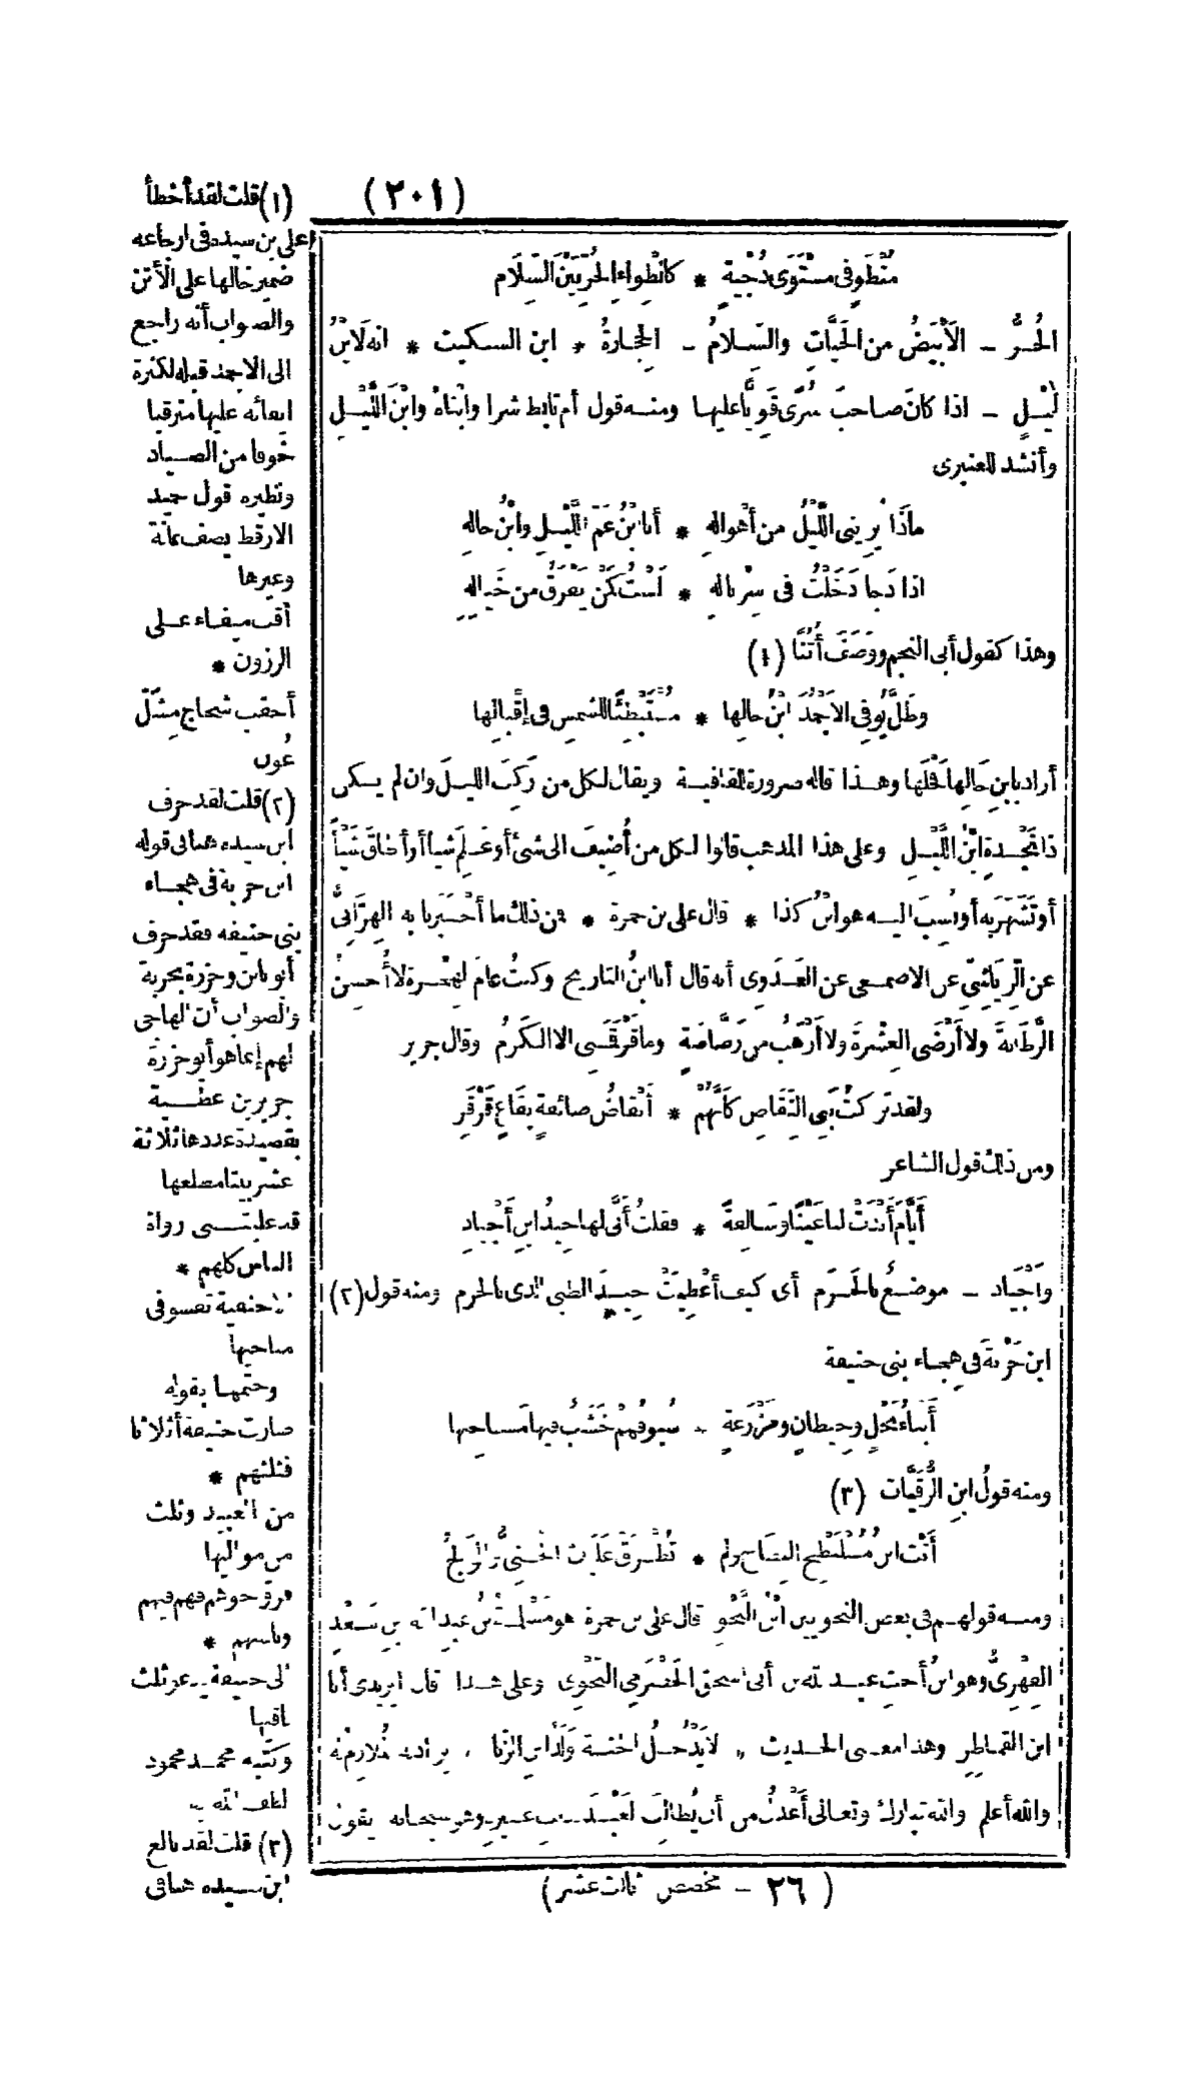 (٢٠١)
مُنْطَوٍ فى مستْوَى دُجْيةٍ * كانْطِواءِ الحُرِّ بَيْنَ السِّلَام
الحُرُّ - الأَبْيَضُ من الحَيَّاتِ والسِّلامُ - الحِجَارَةُ * ابن السكيت * انه لَابْنُ
لَيْلٍ - اذا كانَ صاحبَ سُرًى قَوِيًّا عليها ومنه قول أم تابط شرا وابْناهْ وابْنَ اللَّيْلِ
وأنشد للعنبرى
ماذَا يُرِينى اللَّيْلُ من أهْوالهِ * أنا ابْنُ عَمِّ اللَّيْلِ وابْنُ خالهِ
اذا دَجا دَخَلْتُ فى سِرْبالهِ * لَسْتُ كَمَنْ يَفْرَقُ من خَيالهِ
وهذا كقول أبى النجم ووَصَفَ أُتُنًا (١)
وظَلَّ يُوفِى الأَجْمَدَ ابْنُ خالِها * مُسْتَبْطِئًا للشمسِ فى إقْبالِها
أراد بابنِ خَالِها فَحْلَها وهذا قاله ضرورة القافية ويقال لكل من رَكِبَ الليلَ وان لم يكن
ذا نَجْدةٍ ابْنُ اللَّيْلِ وعلى هذا المذهب قالوا لكل من أُضِيفَ الى شئ أو عَلِمَ شيأ أو أطاقَ شَيْأً
أو تَشَهَّرَ به أو نُسِبَ اليه هو ابنُ كذا * قال على بن حمزة * فمن ذلك ما أخْبَرَنا به الهِزَّانىُّ
عن الرِّيَاشِىِّ عن الاصمعى عن العَدَوِى أنه قال أنا ابنُ التاريخ وكنتُ عامَ الهِجْرة لا أُحْسِنُ
الرَّطَانةَ ولا أَرْضَى العِشْرةَ ولا أرْهَبُ من رَصَّاصَةٍ وما قَرْقَمَنِى الا الكَرَمُ وقال جرير
ولقد تركتُ بَنِى النِّقَاصِ كأنَّهُمْ * أنْقاضُ صائفةٍ بقَاعٍ قَرْقَرِ
ومن ذلك قول الشاعر
أَيَّامَ أَبْدَتْ لنا عَيْنًا وسَالِفةً * فقلتُ أَنَّى لها جِيدُ ابنِ أَجْيادِ
وأَجْيَاد - موضعٌ بالحَرَم أى كيف أُعْطِيَتْ جِيدَ الظبى الذى بالحرم ومنه قول (٢)
ابن حَرْبةَ فى هِجاء بنى حنيفة
أَبْناءُ نَخْلٍ وحِيطانٍ ومَزْرَعةٍ * سُيوفُهُمْ خَشَبٌ فيها مَسَاحِيها
ومنه قولُ ابنِ الرُّقَيَّات (٣)
أَنْتَ ابنُ مُسْلَنْطِحِ البِطَاحِ ولم * تُطْرَقْ عَلَيْكَ الحُنِىُّ والوُلُجُ
ومنه قولهم فى بعض النحويين ابْنُ النَّحْوِ قال على بن حمزة هو مَسْلمةُ بنُ عبد الله بن سَعْدٍ
الفِهْرِىُّ وهو ابنُ أختِ عبد الله بن أبى اسحق الحَضْرمِى النَّحْوِى وعلى هذا قال اليزيدى أنا
ابن القماطِرِ وهذا معنى الحديث « لا يَدْخلُ الجنة وَلَدُ الزِّنا » يراد به المُلازِمُ له
والله أعلم والله تبارك وتعالى أعْدَلُ من أن يُطالِبَ العَبْدَ بذنب غيره وهو سبحانه يقول
(٢٦ - مخصص ثالث عشر)
(١) قلت لقد أخطأ
على بن سيده فى ارجاعه
ضمير خالها على الأتن
والصواب أنه راجع
الى الاجمد قبله لكثرة
ايفائه عليها مترقبا
خوفا من الصياد
ونظيره قول حميد
الارقط يصف عانة
وعيرها
أقب ميفاء على
الرزون *
أحقب شحاج مشلّ
عُون
(٢) قلت لقد حرف
ابن سيده هنا فى قوله
ابن حربة فى هجاء
بنى حنيفة فقد حرف
أبو بابن وحزرة بحربة
والصواب أن الهاجى
لهم إنما هو أبو حزرة
جرير بن عطية
بقصيدة عددها ثلاثة
عشر بيتا مطلعها
قد غلبتنى رواة
الناس كلهم *
الا حنيفة تفسو فى
مناحيها
وختمها بقوله
صارت حنيفة أثلاثا
فثلثهم *
من العبيد وثلث
من مواليها
وكتبه محمد محمود
لطف الله به
(٣) قلت لقد بالغ
ابن سيده هنا فى